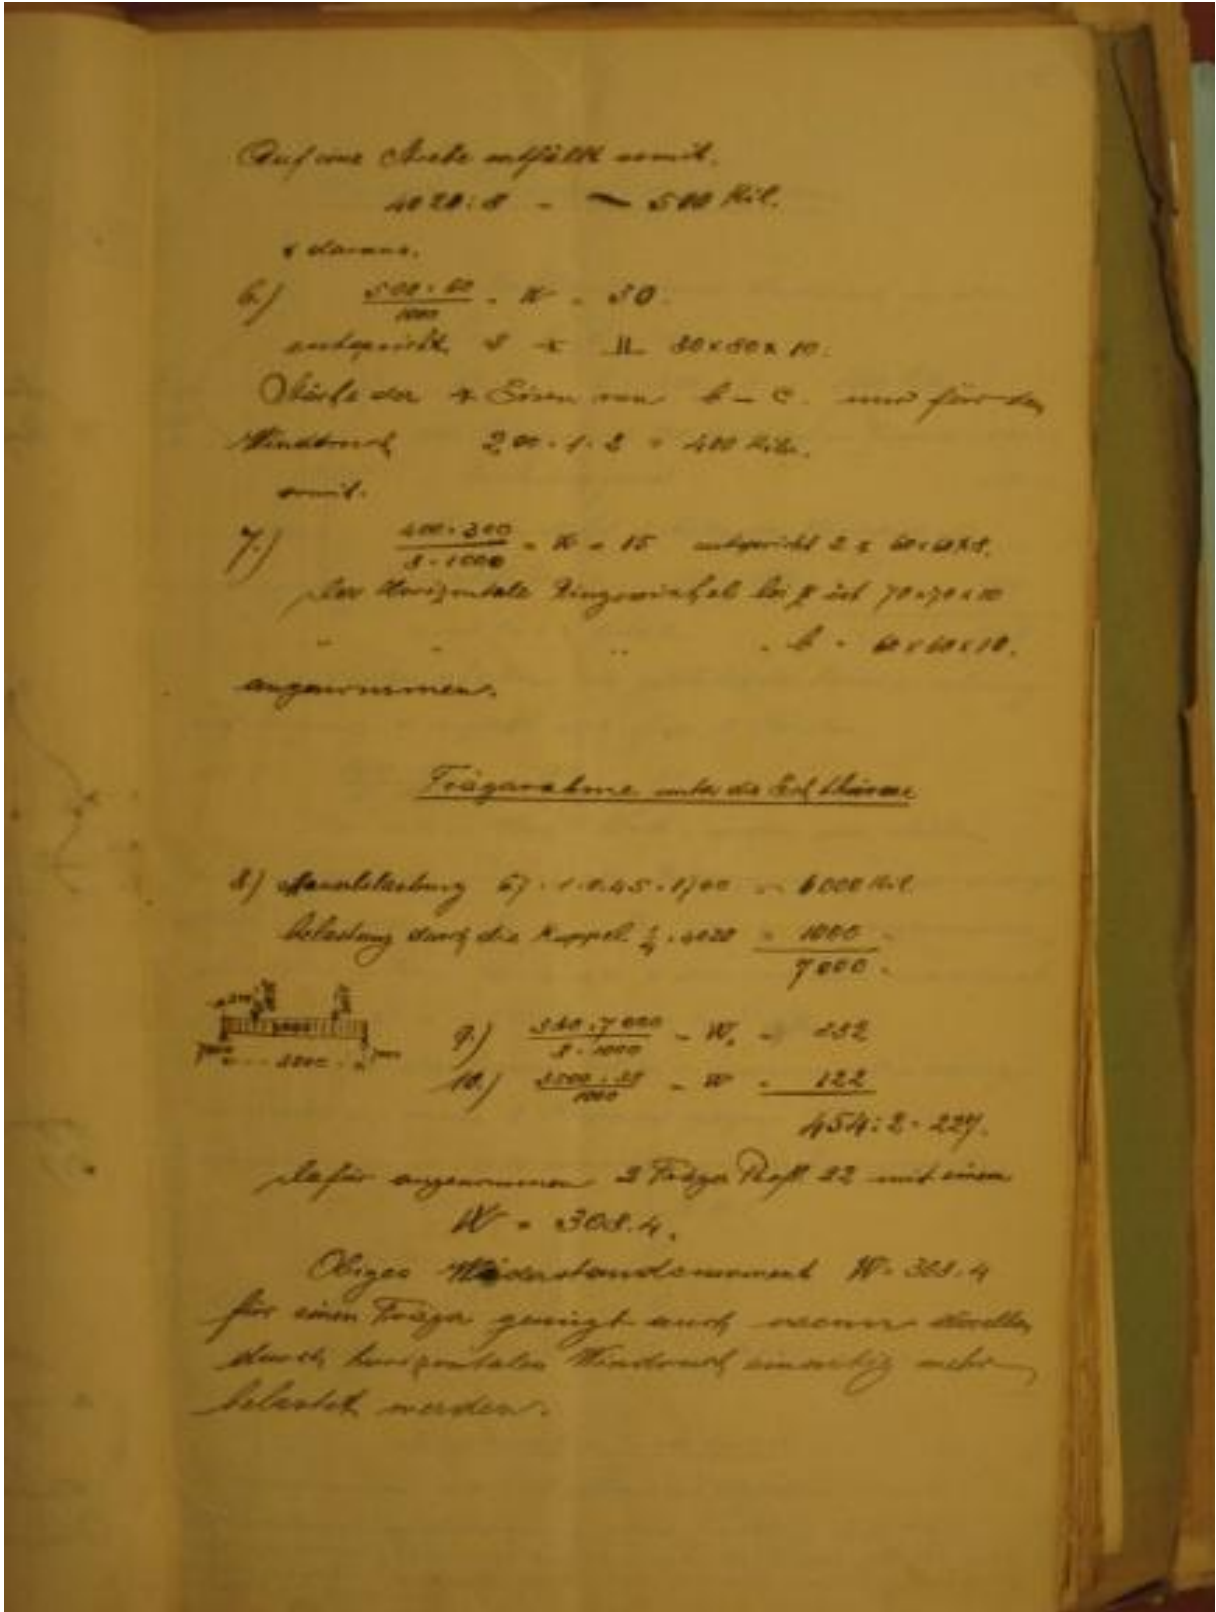 Auf eine Strebe entfällt somit.
4020 : 8 = ~ 500 Kil.
& daraus.
6.) 500 · 60 / 1000 = W = 30.
entspricht 80 × 80 × 10.
Stärke der Eisen von b – c. nur für den
Winddruck 2,00 · 1 · 2 = 400 Kilo.
somit.
7.) 400 · 300 / 8 · 1000 = W = 15 entspricht 2 60 × 60 × 8.
Der Horizontale Ringwinkel bei ist 70 × 70 × 10
" " " " b " 60 × 60 × 10.
angenommen.
Trägerrahme unter die Eckthürme
8.) Mauerbelastung · 1 · 0.45 · 1700 = 6000 Kil.
belastung durch die Kuppel. 1/4 · 4020 = 1000
7000.
3200
9.) · 7000 / 8 · 1000 = W =
10.) 3500 · / 1000 = W = 122
454 : 2 = 227.
Dafür angenommen 2 Träger Profl. 22 mit einem
W = 308.4.
Obiges Widerstandsmoment W = 308.4
für einen Träger genügt auch wenn dieselben
durch horizontalen Winddruck einseitig mehr
belastet werden.